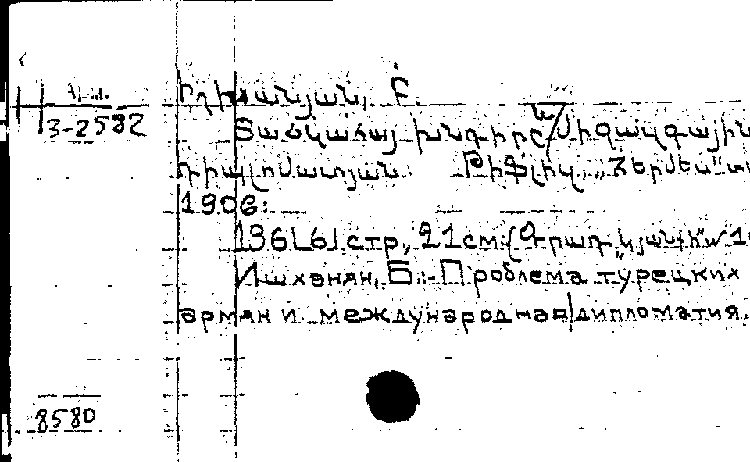 Իշխանյան, Բ.
3-2582
Տաճկահայ խնդիրը և միջազգային
դիպլոմատյան. Թիֆլիս, „Հերմես" տ
1906:
136[6] стр., 21 см. (Գրադ. "Կյանք"
Ишханян, Б. - Проблема турецких
армян и международная дипломатия.
8580